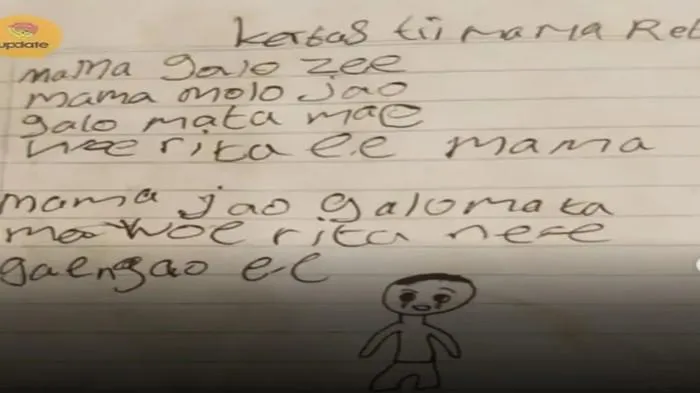 update
kertas tii mama Ret
mama galo zee
mama molo jao
galo mata mae
woe rita ee mama
mama jao galo mata
mae woe rita nee
gae ngao ee